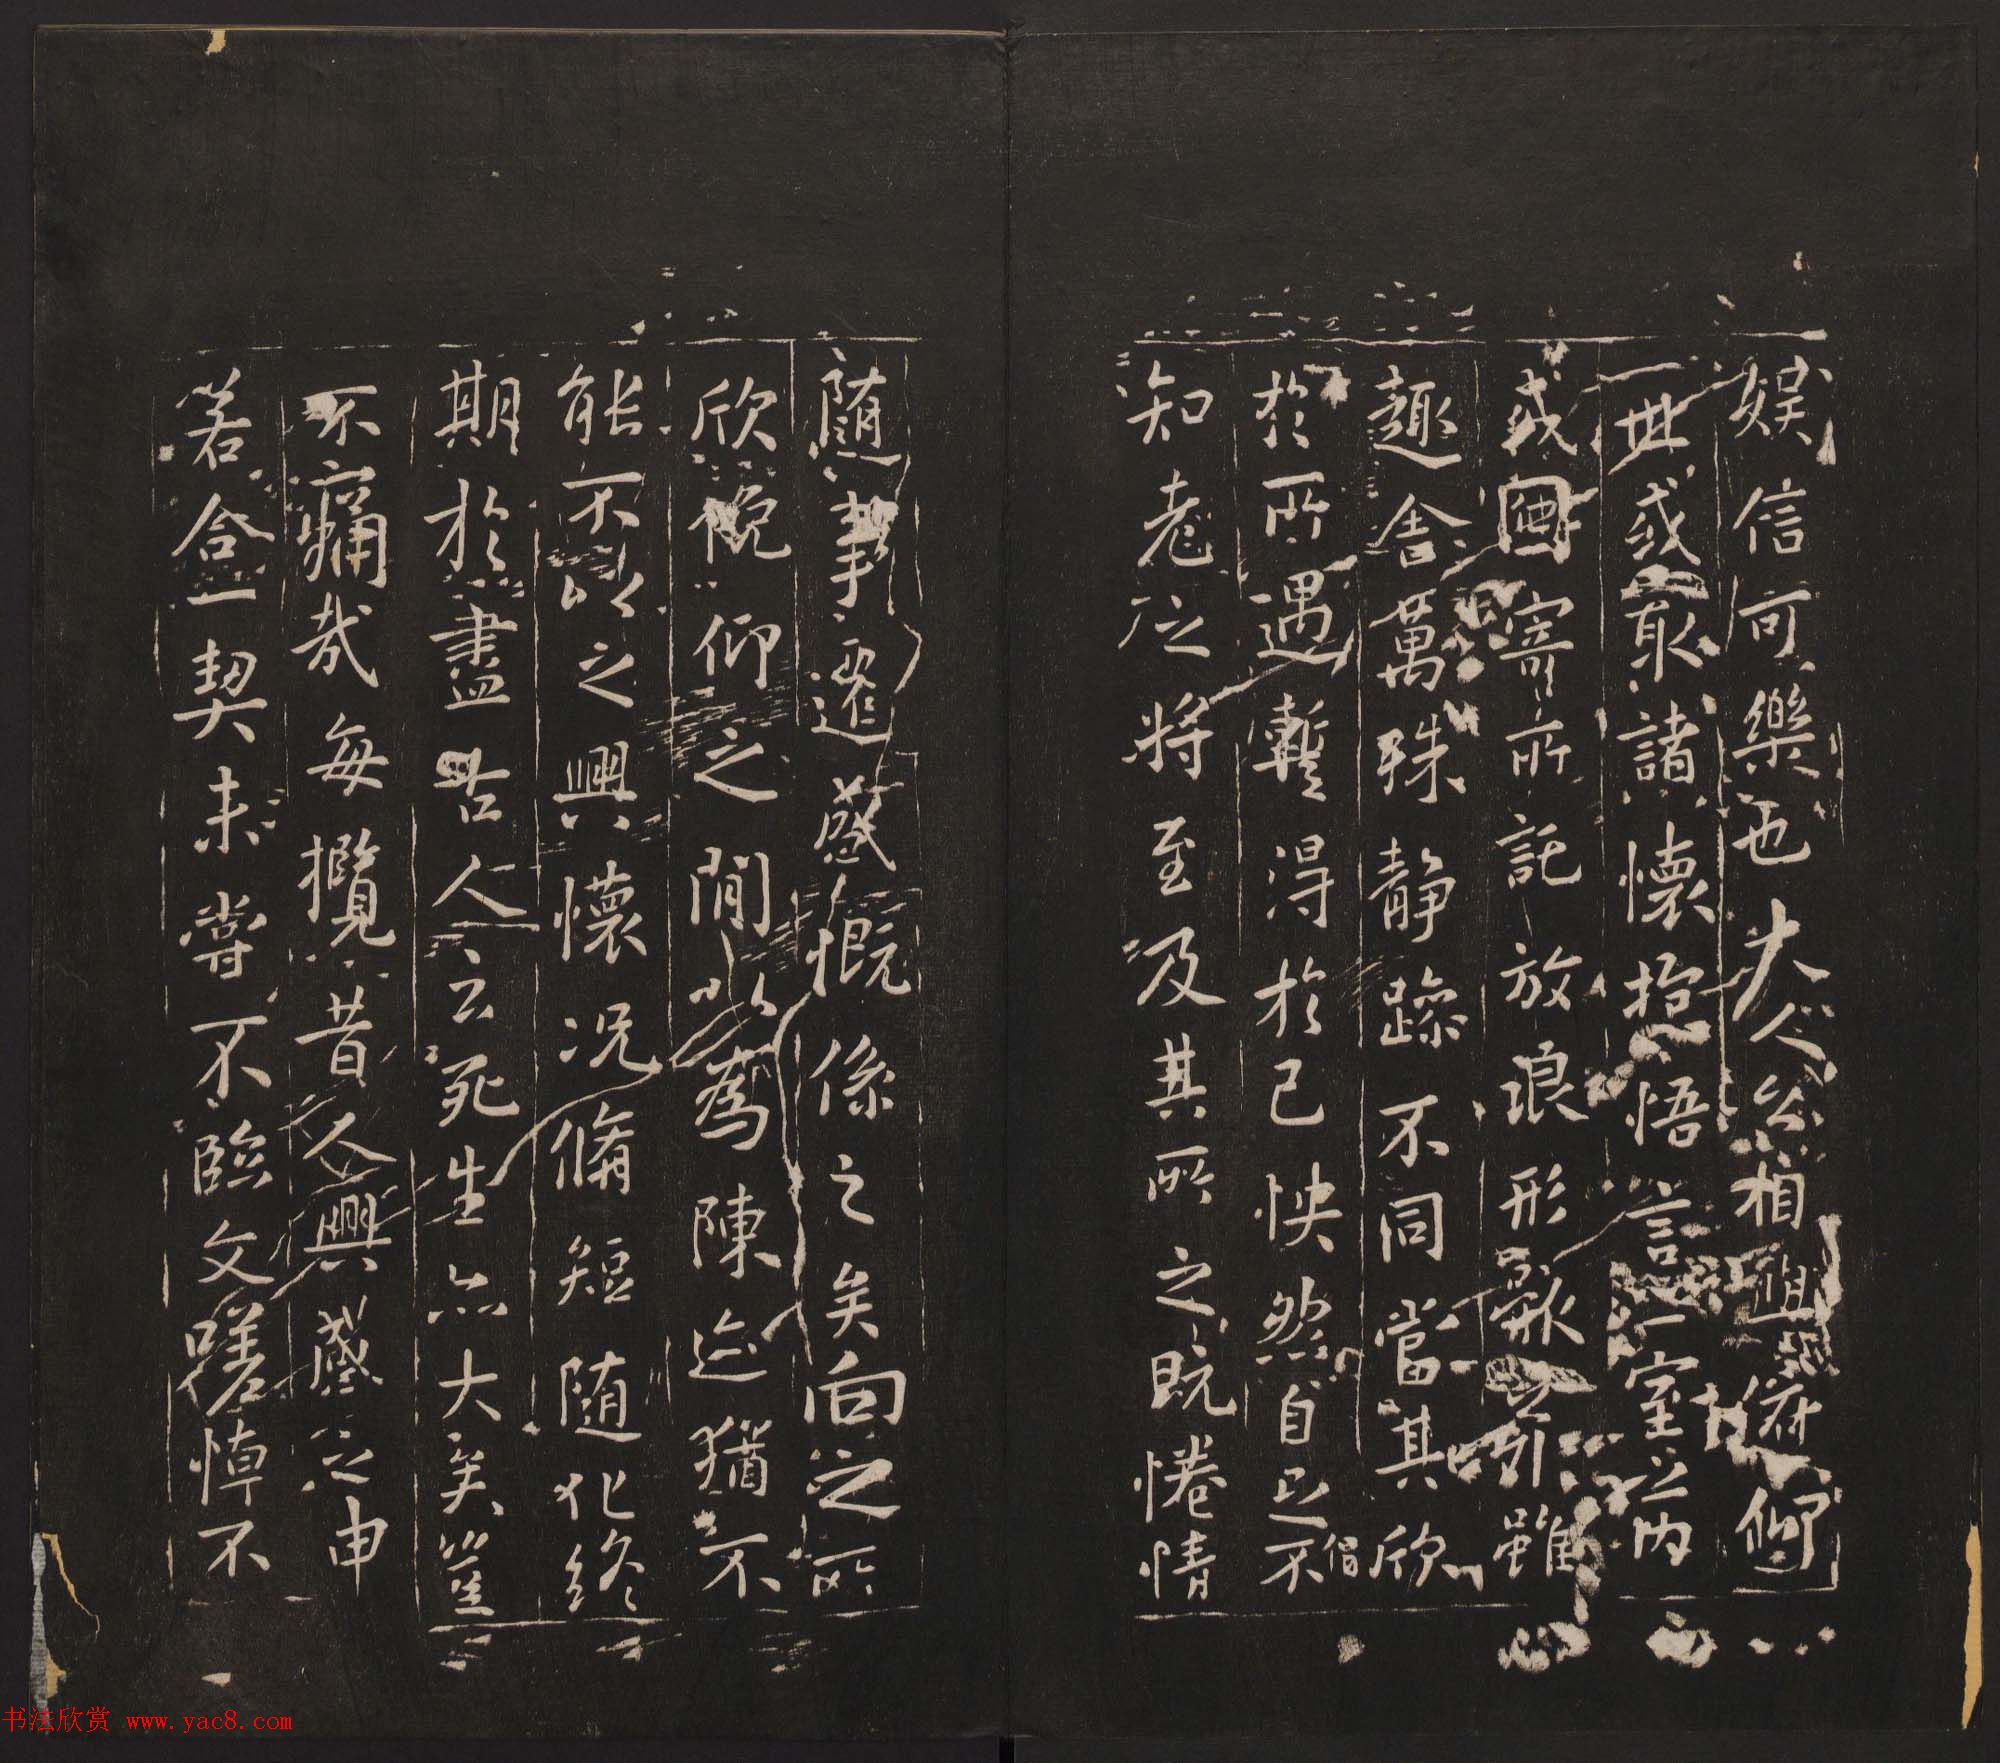 娱信可樂也大人之相與俯仰
一世或取諸懷抱悟言一室之內
或因寄所託放浪形骸之外雖
趣舍萬殊静躁不同當其欣
於所遇蹔得於己怏然自足不
知老之將至及其所之既惓情
随事遷感慨係之矣向之所
欣俛仰之閒以為陳迹猶不
能不以之興懷況脩短随化終
期於盡古人云死生亦大矣豈
不痛哉每攬昔人興感之由
若合一契未嘗不臨文嗟悼不
书法欣赏 www.yac8.com